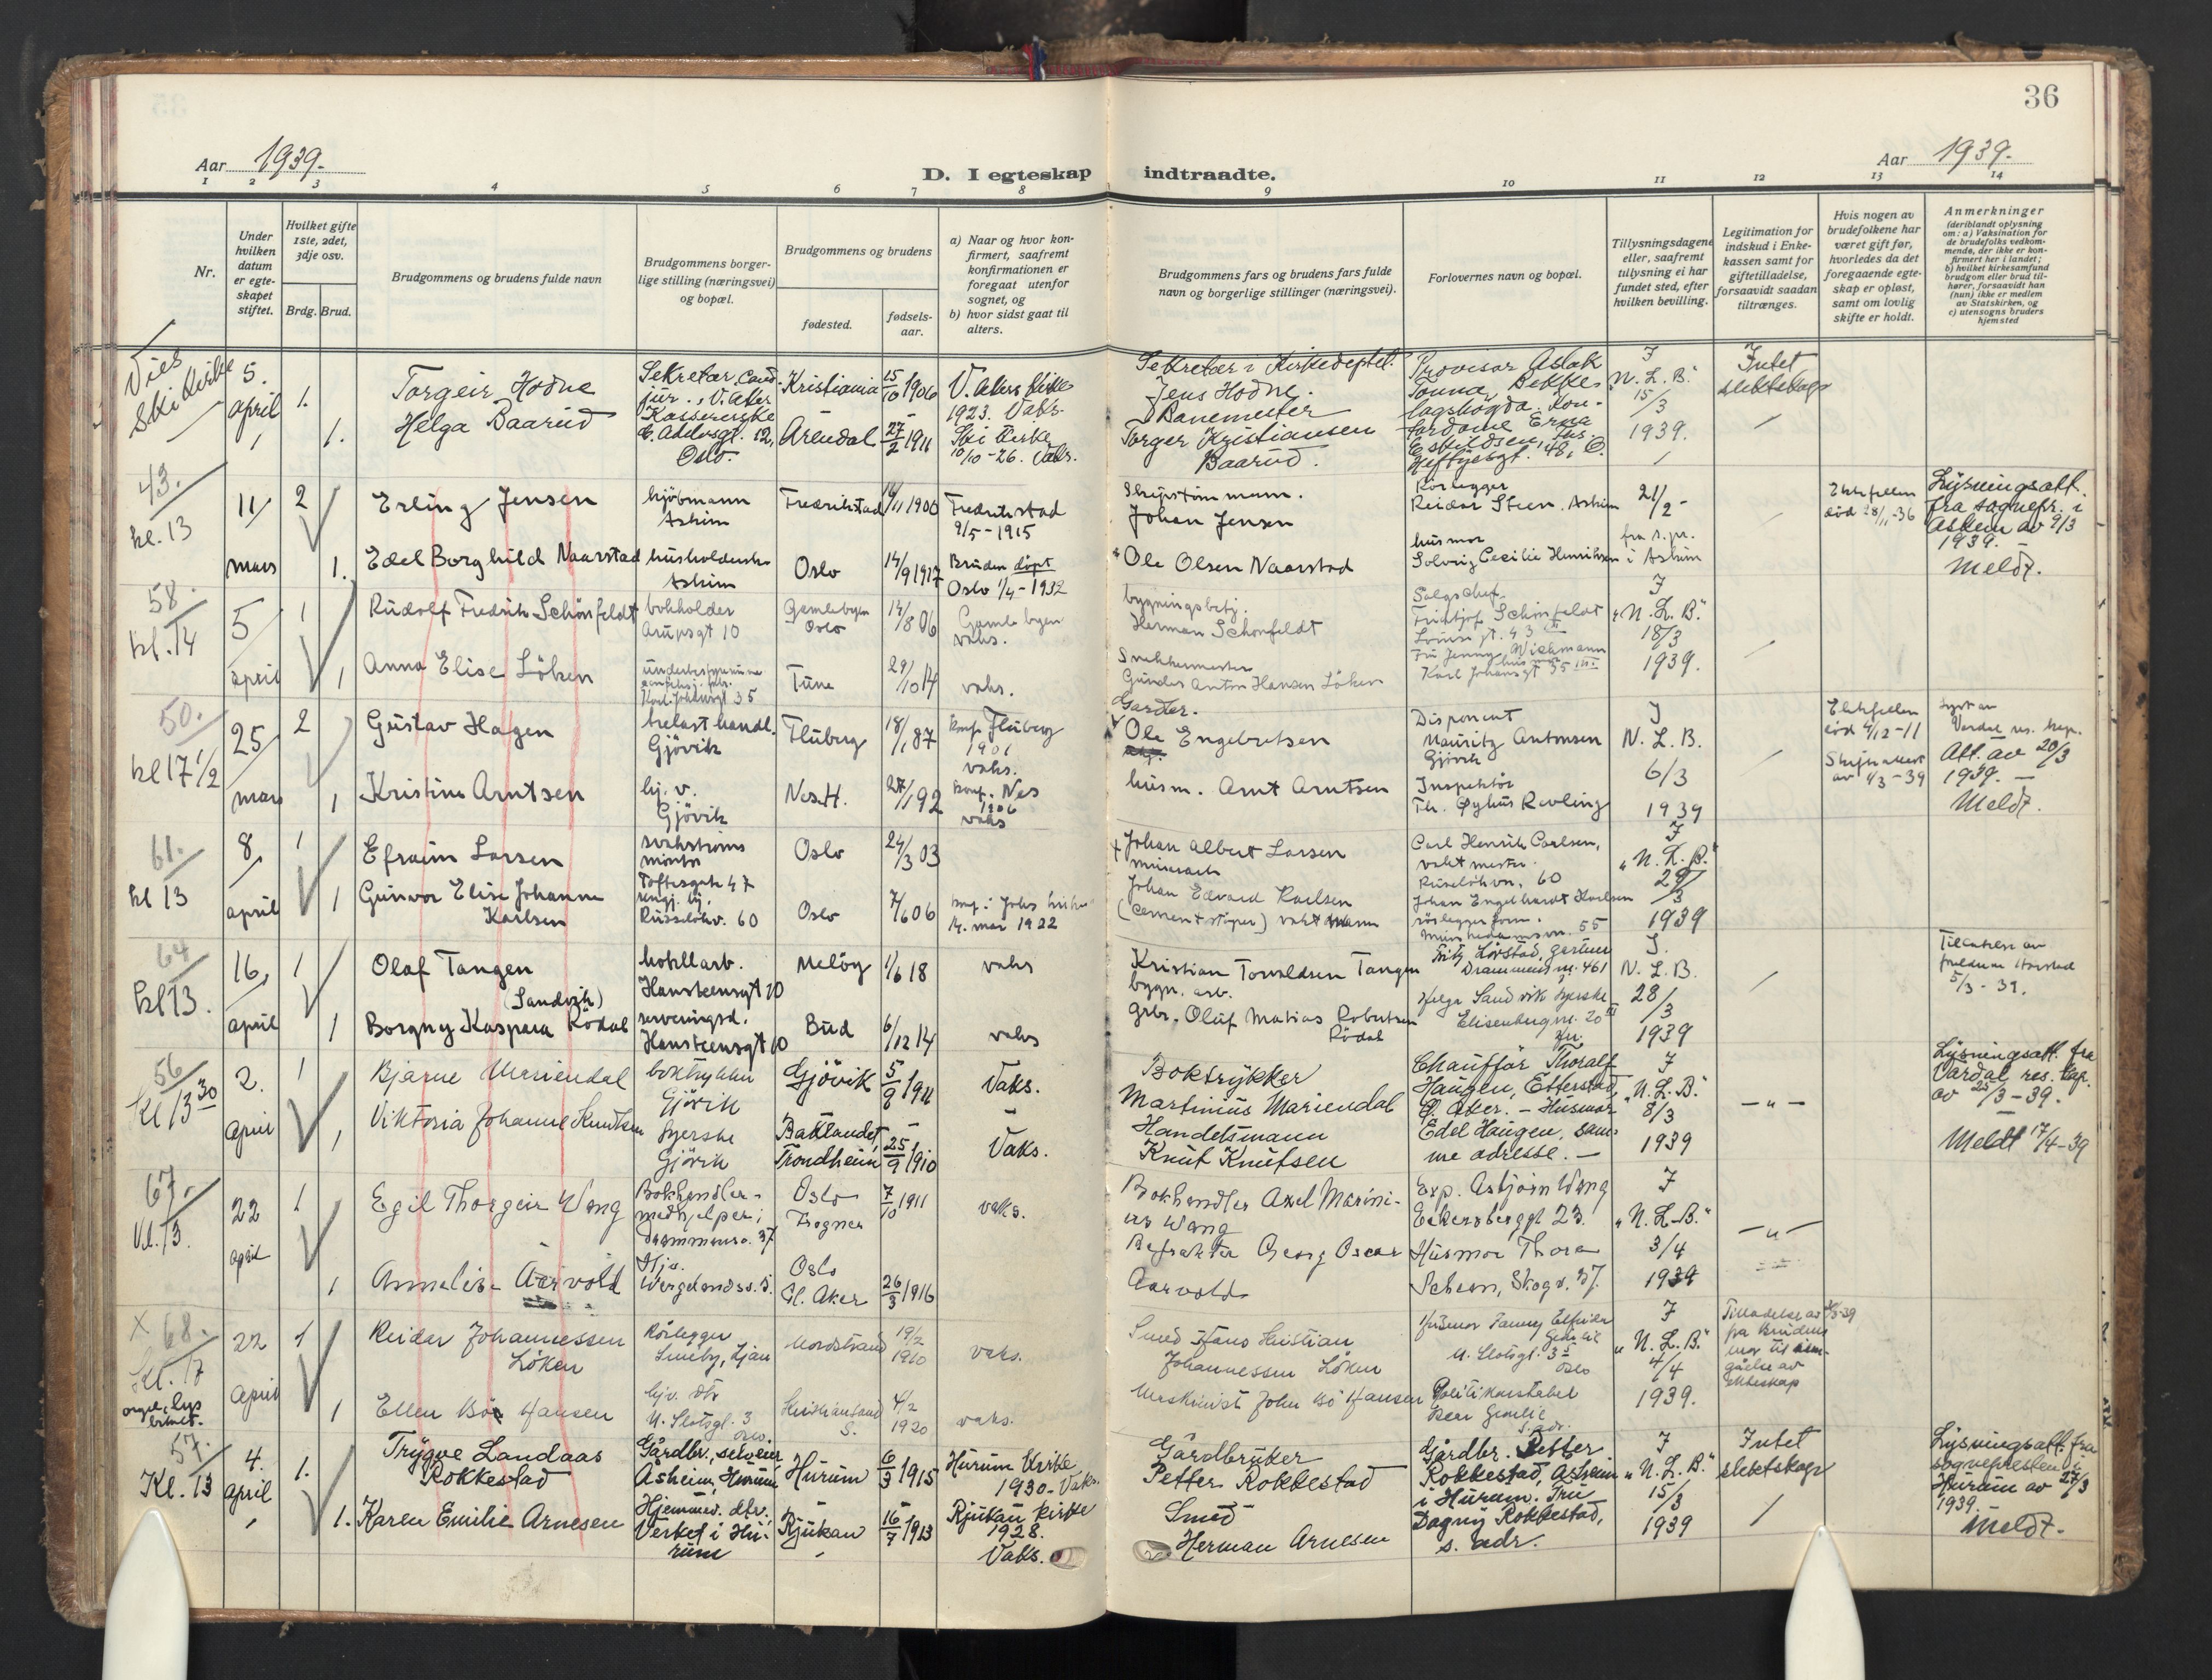 36
Aar 1939.
D. I egteskap indtraadte.
Aar 1939.
1 2 3 4 5 6 7 8 9 10 11 12 13 14
Nr.
Under hvilken datum er egteskapet stiftet.
Hvilket gifte 1ste, 2det, 3dje osv.
Brdg. Brud.
Brudgommens og brudens fulde navn
Brudgommens borgerlige stilling (næringsvei) og bopæl.
Brudgommens og brudens
fødested.
fødselsaar.
a) Naar og hvor konfirmert, saafremt konfirmationen er foregaat utenfor sognet, og
b) hvor sidst gaat til alters.
Brudgommens fars og brudens fars fulde navn og borgerlige stillinger (næringsvei).
Forlovernes navn og bopæl.
Tillysningsdagene eller, saafremt tillysning ei har fundet sted, efter hvilken bevilling.
Legitimation for indskud i Enkekassen samt for giftetilladelse, forsaavidt saadan tiltrænges.
Hvis nogen av brudefolkene har været gift før, hvorledes da det foregaaende egteskap er opløst, samt om lovlig skifte er holdt.
Anmerkninger
(deriblandt oplysning om: a) Vaksination for de brudefolks vedkommende, der ikke er konfirmert her i landet; b) hvilket kirkesamfund brudgom eller brud tilhører, forsaavidt han (hun) ikke er medlem av Statskirken, og c) utensogns bruders hjemsted
Vies Ski Kirke
5. april 1.
Torgeir Hodne
Sekretær, Cand. jur., V. Aker
Kristiania 15/10 1906
V. Akers Kirke 1923. Vaks.
Sekretær i Kirkedeptet. Jens Hodne.
Provisor Aslak Tonna, Bekkelagshøgda.
I "N. L. B." 15/3 1939.
Intet slektskap
1. Helga Baarud
Kassererske C. Oslo.
Arendal 27/2 1911
Ski Kirke 10/10-26. Vaks.
Banemester Torger Kristiansen Baarud.
Erna Eskildsen, Ths. Heftyesgt. 48, O.
43. kl. 13
11/ mars 2
Erling Jensen
kjöbmann Askim
Fredrikstad 16/11 1900
Fredrikstad 9/5-1915
Skipstömmerm. Johan Jensen
Rörlegger Reidar Steen, Askim
21/2 - fra s.pr. i Askim
Ektefellen död 28/11-36
Lysningsatt. fra sognepr. i Askim av 9/3 1939. - Meldt.
1. Edel Borghild Naarstad
husholderske Askim
Oslo 14/9 1917
Bruden döpt Oslo 1/4-1932
Ole Olsen Naarstad
husmor Solveig Cecilie Henriksen
58. kl. 14
5/ april 1
Rudolf Fredrik Schönfeldt
bokholder Arupsgt 10
Gamlebyen Oslo 14/8 06
Gamlebyen vaks.
bygningsbetj. Herman Schönfeldt
Salgschef Fridtjof Schönfeldt Louisesgt. 43 III
I "N. L. B." 18/3 1939.
1 Anna Elise Löken
Karl Johansgt 35
Tune 29/10 14
vaks.
Snekkermester Gunder Anton Hansen Löken
Fru Jenny Wickmann husmor Karl Johansgt 35 III
50. kl 17 1/2
25/ mars 2
Gustav Hagen
trelasthandl. Gjövik
Fluberg 18/1 87
konf. Fluberg 1901 vaks.
Garder. Ole Engebretsen
Disponent Mauritz Antonsen Gjövik
I N. L. B. 6/3 1939
Ektefellen död 4/12-11 Skifteattest av 4/3-39
Lyst av Vardal res. kap. Att. av 20/3 1939. - Meldt.
1 Kristine Arntsen
hj. v. Gjövik
Nes.H. 27/1 92
konf. Nes 1906 vaks
husm. Arnt Arntsen
Inspektör Th. Öyhus Rovling
61. kl 13
8/ april 1
Efraim Larsen
svakströms montör Toftesgate 47
Oslo 24/3 03
Johan Albert Larsen murerarb.
Carl Henrik Carlsen, vaktmester. Ruselökvn. 60
I "N. L. B." 29/3 1939
1 Gunvor Elise Johanne Karlsen
rengj. hj. Russelökv. 60
Oslo 7/6 06
konf. i Johs kirke 14. mai 1922
Johan Edvard Karlsen (cementstöper) vaktmann
Johan Engelhardt Karlsen rörleggerform. 55
64 kl 13.
16/ april 1
Olaf Tangen
hotellarb. Hansteensgt 10
Melöy 1/6 18
vaks
Kristian Torvaldsen Tangen bygn. arb.
Fritz Lövstad, gartner Drammensvn. 461
I. N. L. B. 28/3 1939
5/3-39.
1 Borgny Kaspara Rödal (Sandvik)
serveringsd. Hansteensgt 10
Bud 6/12 14
vaks
Grbr. Oluf Matias Robertsen Rödal
Helga Sandvik Elisenbergvn. 20 III
56 Kl 13 30
2. april 1
Bjarne Mariendal
boktrykker Gjövik
Gjövik 5/8 1911
Vaks.
Boktrykker Martinus Mariendal
Chauffør Thoralf Haugen, Etterstad, Ø. Aker.
I "N. L. B." 8/3 1939
- " -
Lysningsatt. fra Vardal res. kap. av 25/3-39. - Meldt 17/4-39
1 Viktoria Johanne Knutsen
syerske Gjövik
Baklandet, Trondheim 25/9 1910
Vaks.
Handelsmann Knut Knutsen
Husmor Edel Haugen, samme adresse. -
67. kl. 13.
22 april 1
Egil Thorgeir Wang
Bokhandlermedhjelper, Drammensv. 37
Oslo Frogner 7/10 1911
vaks.
Bokhandler Axel Marinius Wang
Exp. Asbjörn Wang Eckersbergsgt 23.
I "N. L. B." 3/4 1939
- " -
1 Annelise Aarvold
Hjv. Wergelandsv. 5.
Oslo Gl. Aker 26/3 1916
Befrakter Georg Oscar Aarvold
Husmor Thora Scheen, Skogv. 37.
X 68. Kl. 17
22 april 1
Reidar Johannessen Löken
Rörlegger Ljan
Nordstrand 19/2 1910
vaks.
Smed Hans Kristian Johannessen Löken
Husmor Fanny Elfrida N. Slotsgt. 3 Oslo
I "N. L. B." 4/4 1939.
Tilladelse av fra brudens mor til inngåelse av ekteskap
1 Ellen Bö Hansen
hjv. dtr N. Slotsgt. 3 Oslo.
Kristiansand S. 4/2 1920
vaks.
Maskinist John Bö Hansen
Politikonstabel s. adr.
57. Kl. 13
4. april 1.
Trygve Landaas Rokkestad
Gårdbr., selveier, Åsheim, Hurum
Hurum 6/3 1915
Hurum Kirke 1930. Vaks.
Gårdbruker Petter Rokkestad
Gårdbr. Petter Rokkestad, Åsheim i Hurum. Fru
I "N. L. B." 15/3 1939
Intet slektskap
Lysningsatt. fra sognepresten i Hurum av 27/3 1939. - Meldt.
1. Karen Emilie Arnesen
Hjemmev. dtr., Verket i Hurum
Rjukan 16/7 1913
Rjukan kirke 1928. Vaks.
Smed Herman Arnesen
Dagny Rokkestad, s. adr.